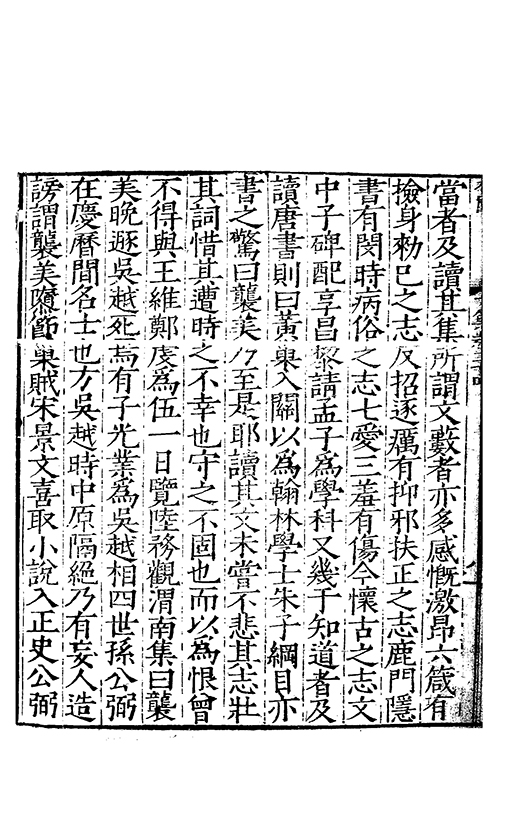 當者及讀其集所謂文藪者亦多感慨激昂六箴有
撿身勑巳之志反招逐厲有抑邪扶正之志鹿門隱
書有閔時病俗之志七愛三羞有傷今懷古之志文
中子碑配享昌黎請孟子為學科又幾于知道者及
讀唐書則曰黃巢入關以為翰林學士朱子綱目亦
書之驚曰襲美乃至是耶讀其文未嘗不悲其志壯
其詞惜其遭時之不幸也守之不固也而以為恨曾
不得與王維鄭虔為伍一日覽陸務觀渭南集曰襲
美晚遯吳越死焉有子光業為吳越相四世孫公弼
在慶曆間名士也方吳越時中原隔絕乃有妄人造
謗謂襲美隳節巢賊宋景文喜取小說入正史公弼